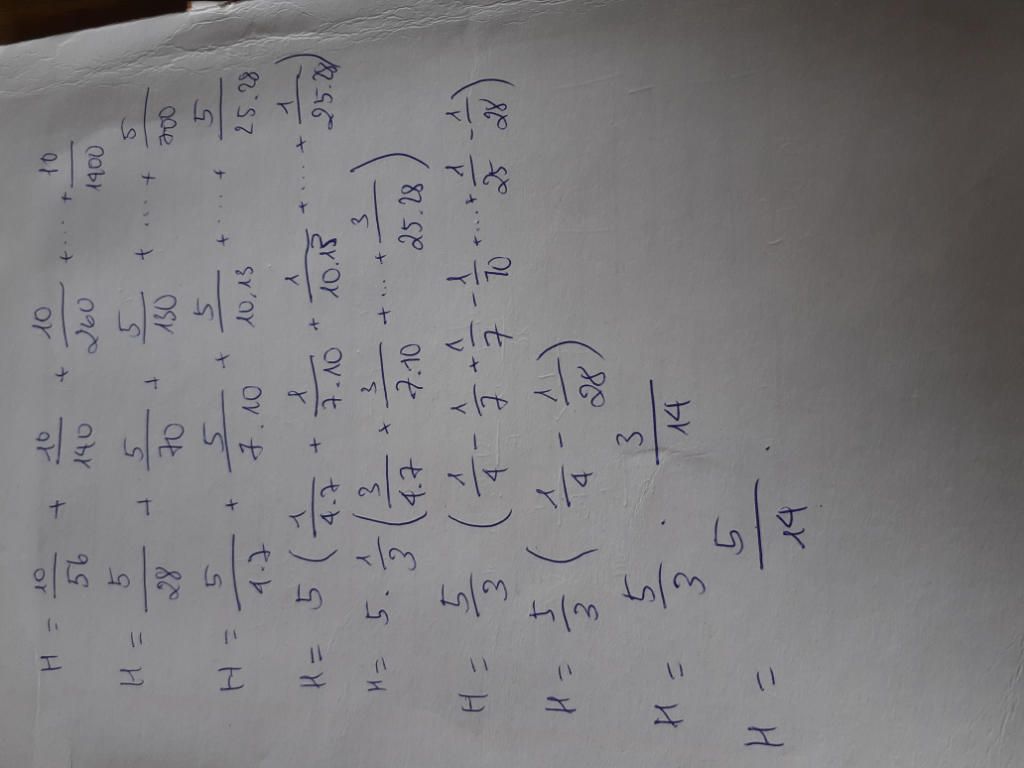 H = 10/56 + 10/140 + 10/260 + .... + 10/1400
H = 5/28 + 5/70 + 5/130 + .... + 5/700
H = 5/4.7 + 5/7.10 + 5/10.13 + .... + 5/25.28
H = 5 (1/4.7 + 1/7.10 + 1/10.13 + .... + 1/25.28)
H = 5. 1/3 (3/4.7 + 3/7.10 + ... + 3/25.28)
H = 5/3 (1/4 - 1/7 + 1/7 - 1/10 + ... + 1/25 - 1/28)
H = 5/3 (1/4 - 1/28)
H = 5/3 . 3/14
H = 5/14 .